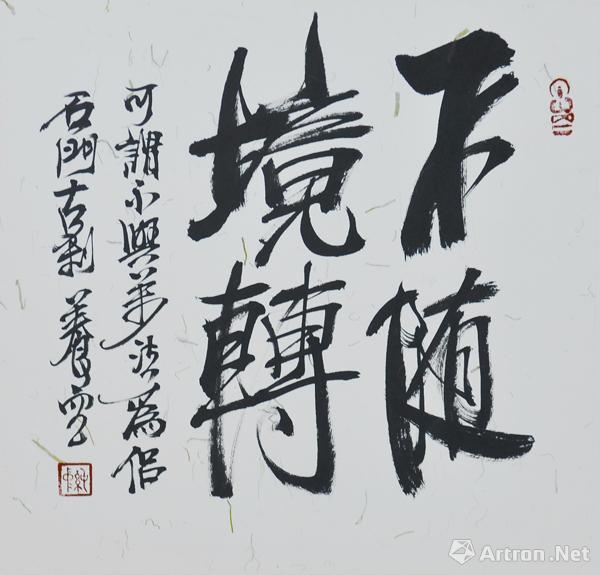 不随
境轉
可謂不與萬法為侶
石門古刹
Artron.Net